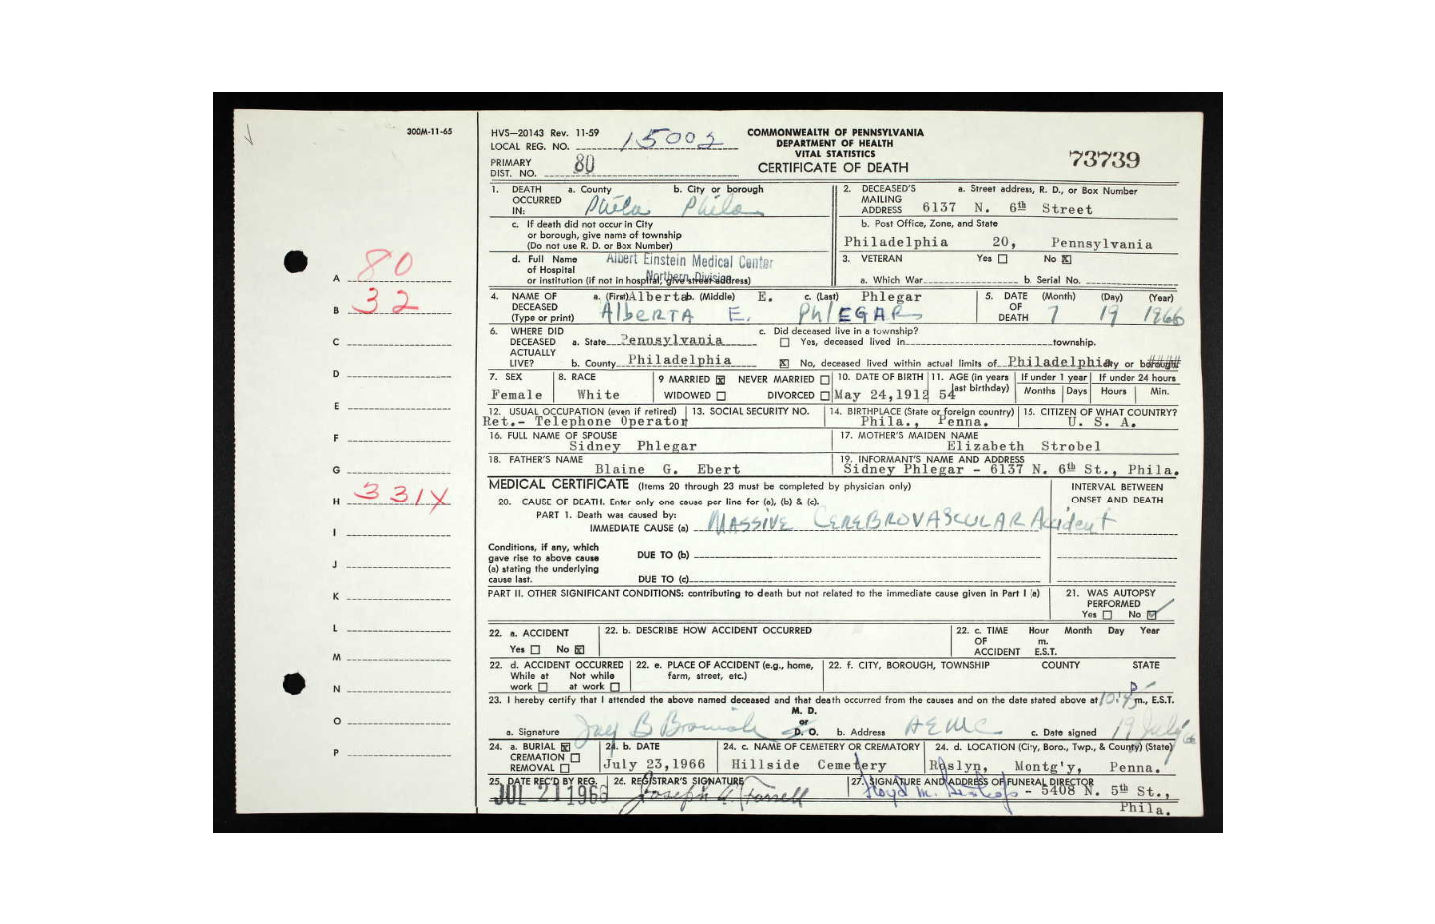 300M-11-65
HVS—20143 Rev. 11-59
LOCAL REG. NO. 15002
PRIMARY
DIST. NO. 80
COMMONWEALTH OF PENNSYLVANIA
DEPARTMENT OF HEALTH
VITAL STATISTICS
CERTIFICATE OF DEATH
73739
1. DEATH OCCURRED IN: a. County Phila b. City or borough Phila
c. If death did not occur in City
or borough, give name of township
(Do not use R. D. or Box Number)
d. Full Name of Hospital or institution (if not in hospital, give street address) Albert Einstein Medical Center
Northern Division
2. DECEASED'S MAILING ADDRESS a. Street address, R. D., or Box Number
6137 N. 6th Street
b. Post Office, Zone, and State
Philadelphia 20, Pennsylvania
3. VETERAN Yes No X
a. Which War b. Serial No.
4. NAME OF DECEASED (Type or print) a. (First) Alberta b. (Middle) E. c. (Last) Phlegar
ALBERTA E. PHLEGAR
5. DATE OF DEATH (Month) (Day) (Year)
7 19 1966
6. WHERE DID DECEASED ACTUALLY LIVE? a. State Pennsylvania
b. County Philadelphia
c. Did deceased live in a township?
Yes, deceased lived in township.
X No, deceased lived within actual limits of Philadelphia city or borough
7. SEX Female
8. RACE White
9 MARRIED X NEVER MARRIED
WIDOWED DIVORCED
10. DATE OF BIRTH May 24,1912
11. AGE (in years last birthday) 54
If under 1 year Months Days
If under 24 hours Hours Min.
12. USUAL OCCUPATION (even if retired) Ret.- Telephone Operator
13. SOCIAL SECURITY NO.
14. BIRTHPLACE (State or foreign country) Phila., Penna.
15. CITIZEN OF WHAT COUNTRY? U. S. A.
16. FULL NAME OF SPOUSE Sidney Phlegar
17. MOTHER'S MAIDEN NAME Elizabeth Strobel
18. FATHER'S NAME Blaine G. Ebert
19. INFORMANT'S NAME AND ADDRESS
Sidney Phlegar - 6137 N. 6th St., Phila.
MEDICAL CERTIFICATE (Items 20 through 23 must be completed by physician only)
INTERVAL BETWEEN
ONSET AND DEATH
20. CAUSE OF DEATH. Enter only one cause per line for (a), (b) & (c).
PART 1. Death was caused by:
IMMEDIATE CAUSE (a) MASSIVE CEREBROVASCULAR Accident
Conditions, if any, which
gave rise to above cause
(a) stating the underlying
cause last.
DUE TO (b)
DUE TO (c)
PART II. OTHER SIGNIFICANT CONDITIONS: contributing to death but not related to the immediate cause given in Part I (a)
21. WAS AUTOPSY
PERFORMED
Yes No
22. a. ACCIDENT
Yes No X
22. b. DESCRIBE HOW ACCIDENT OCCURRED
22. c. TIME OF ACCIDENT Hour Month Day Year
m.
E.S.T.
22. d. ACCIDENT OCCURRED
While at work Not while at work
22. e. PLACE OF ACCIDENT (e.g., home,
farm, street, etc.)
22. f. CITY, BOROUGH, TOWNSHIP COUNTY STATE
23. I hereby certify that I attended the above named deceased and that death occurred from the causes and on the date stated above at 10:45 P m., E.S.T.
a. Signature Jay B M. D. or D. O. b. Address AEMC c. Date signed 19 July 66
24. a. BURIAL X
CREMATION
REMOVAL
24. b. DATE
July 23,1966
24. c. NAME OF CEMETERY OR CREMATORY
Hillside Cemetery
24. d. LOCATION (City, Boro., Twp., & County) (State)
Roslyn, Montg'y, Penna.
25. DATE REC'D BY REG.
JUL 21 1966
26. REGISTRAR'S SIGNATURE
Joseph A. Farrell
27. SIGNATURE AND ADDRESS OF FUNERAL DIRECTOR
Floyd M. - 5408 N. 5th St.,
Phila.
A 80
B 32
C
D
E
F
G
H 331X
I
J
K
L
M
N
O
P